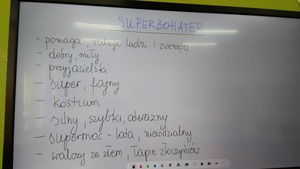 SUPERBOHATER
- pomaga, ratuje ludzi i zwierzęta
- dobry, miły
- przyjacielski
- super, fajny
- kostium
- silny, szybki, odważny
- supermoc - lata, niewidzialny
- walczy ze złem, łapie złoczyńców